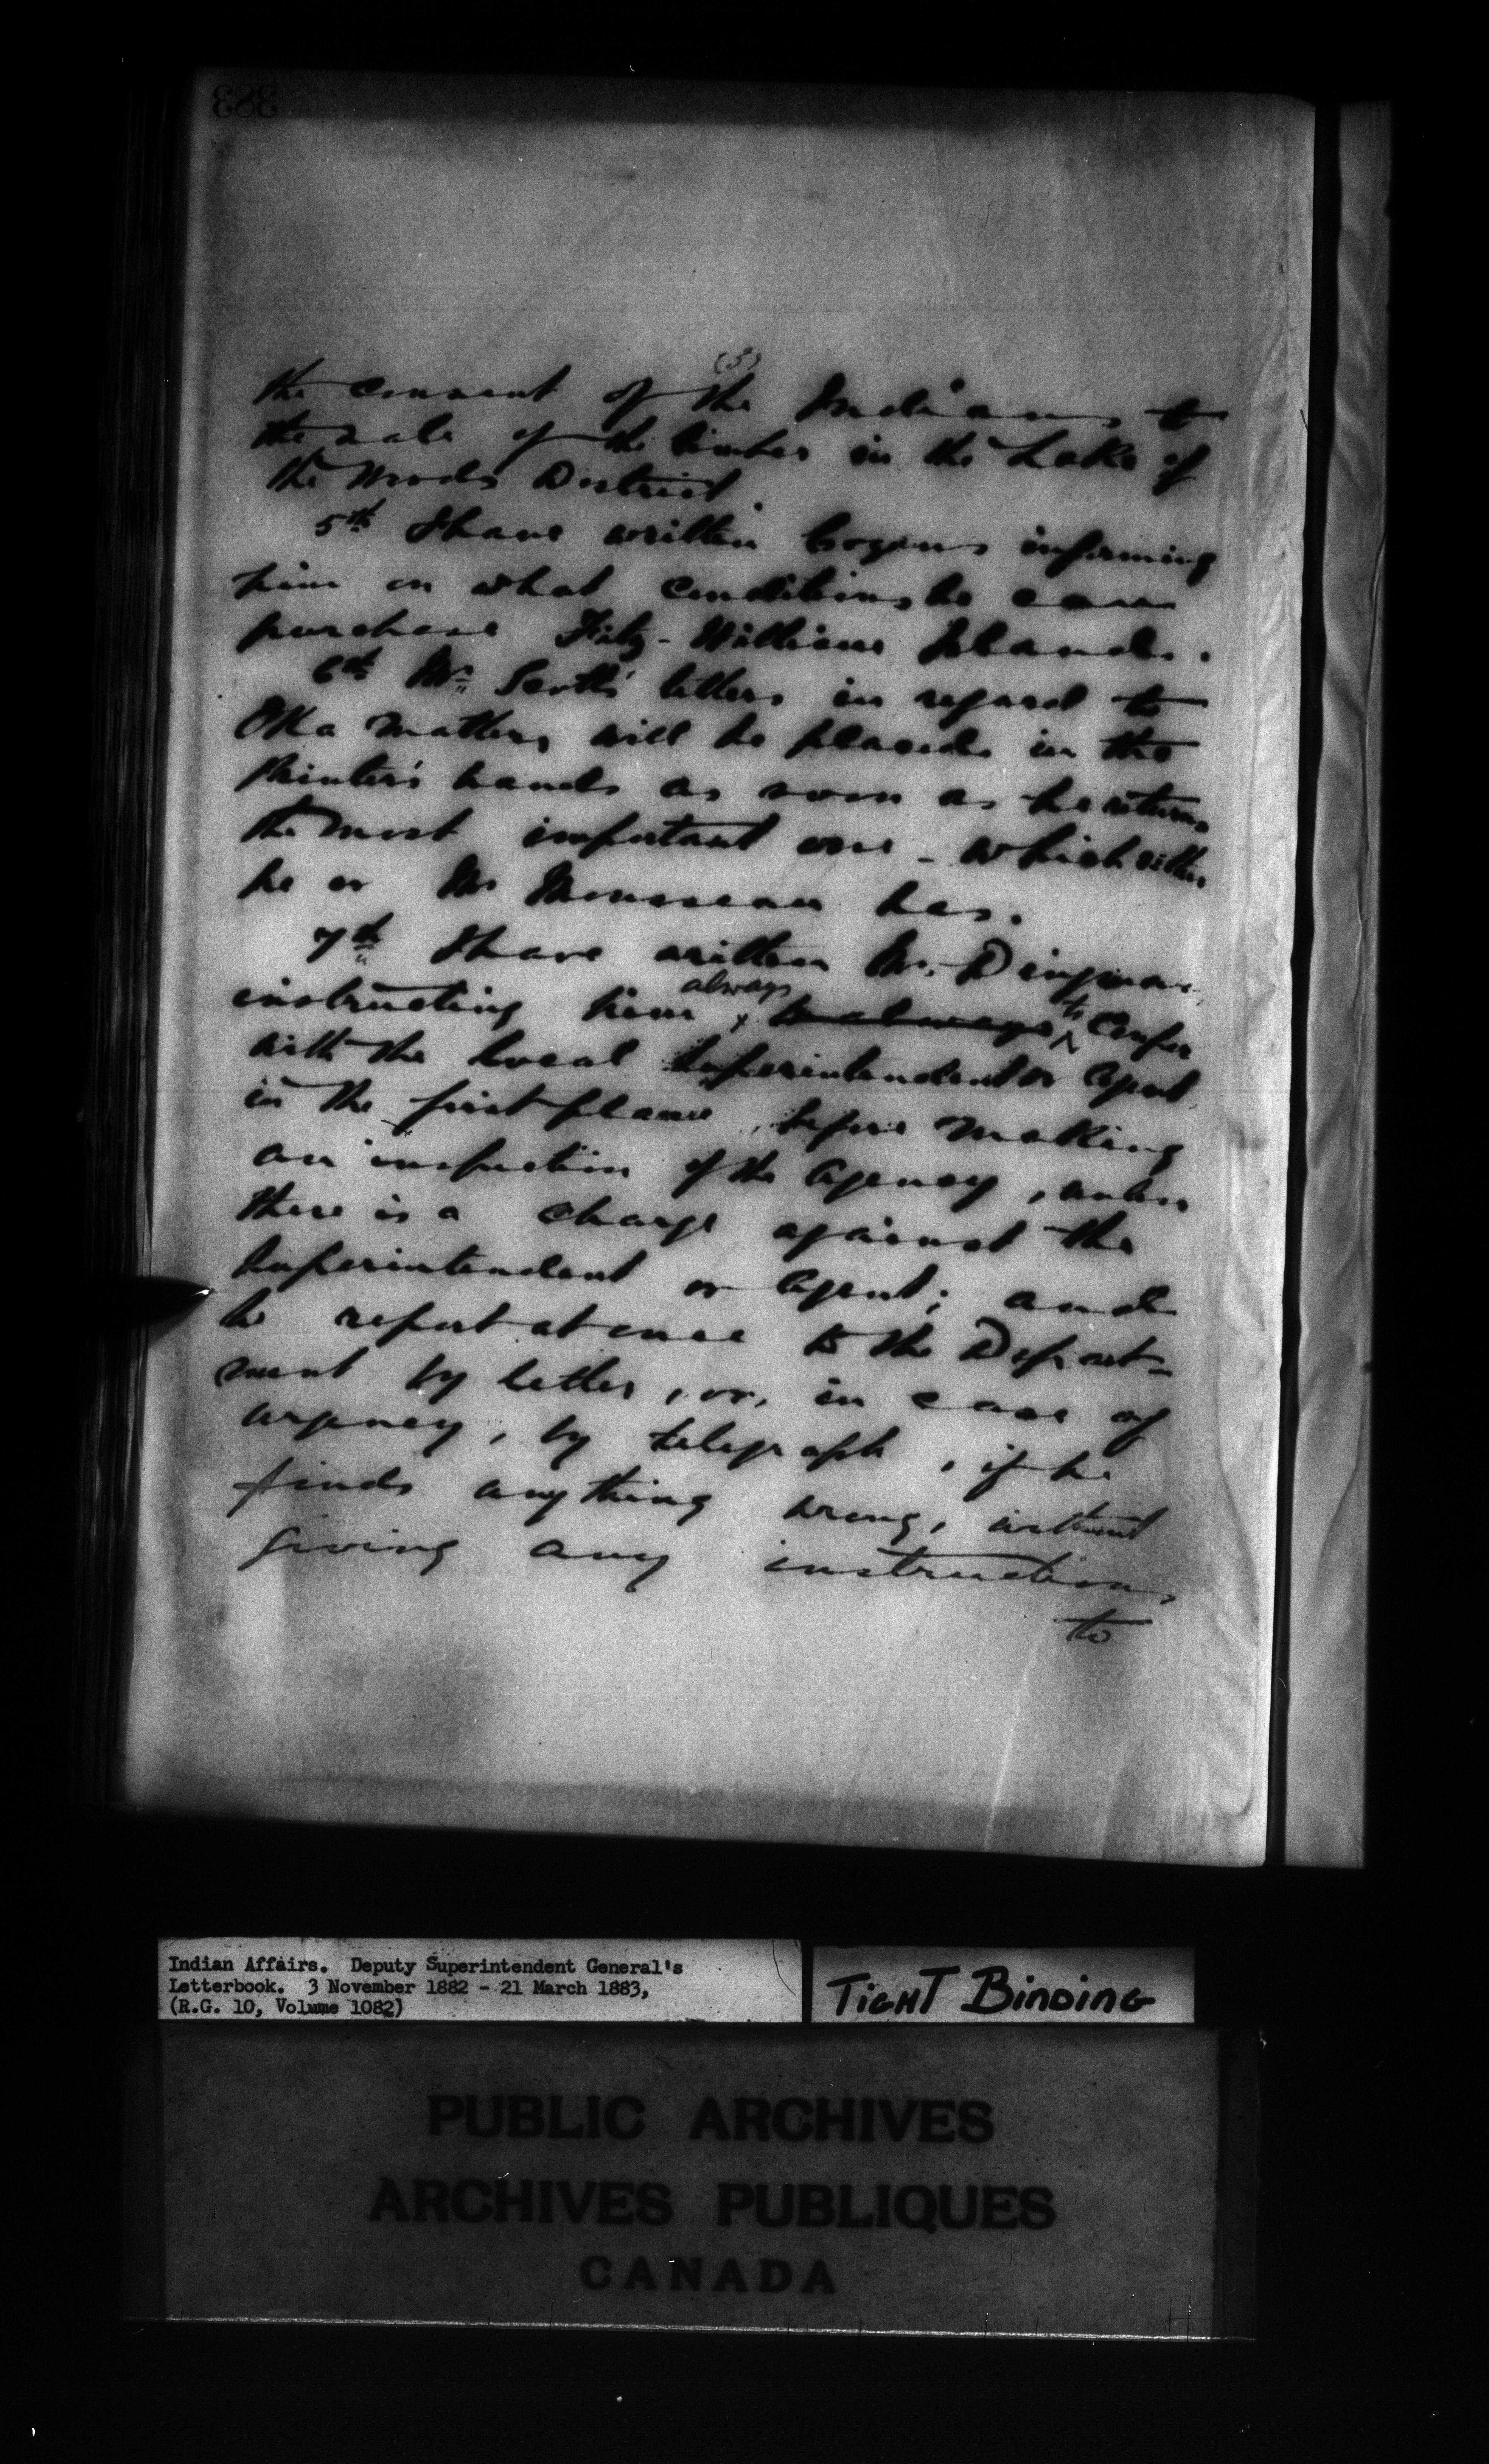 383
(3)
the consent of the Indians to
the sale of the timber in the Lake of
the Woods District.
5th I have written informing
him on what conditions he can
purchase Fitz-William Island.
6th Mr Scott's letters in regard to
Oka matters will be placed in the
Printer's hands as soon as he returns
the most important one - which either
he or Mr Mousseau has.
7th I have written Mr. Dingman,
instructing him always to always to Confer
with the local Superintendent or Agent
in the first place, before making
an inspection of the Agency, unless
there is a charge against the
Superintendent or Agent; and
to report at once to the Depart-
ment by letter, or, in case of
urgency, by telegraph, if he
finds anything wrong, without
giving any instructions
to
Indian Affairs. Deputy Superintendent General's
Letterbook. 3 November 1882 - 21 March 1883,
(R.G. 10, Volume 1082)
TIGHT BINDING
PUBLIC ARCHIVES
ARCHIVES PUBLIQUES
CANADA